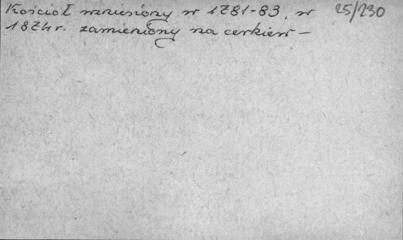 Kościół wzniesiony w 1781-83, w 25/230
1874r. zamieniony na cerkiew —